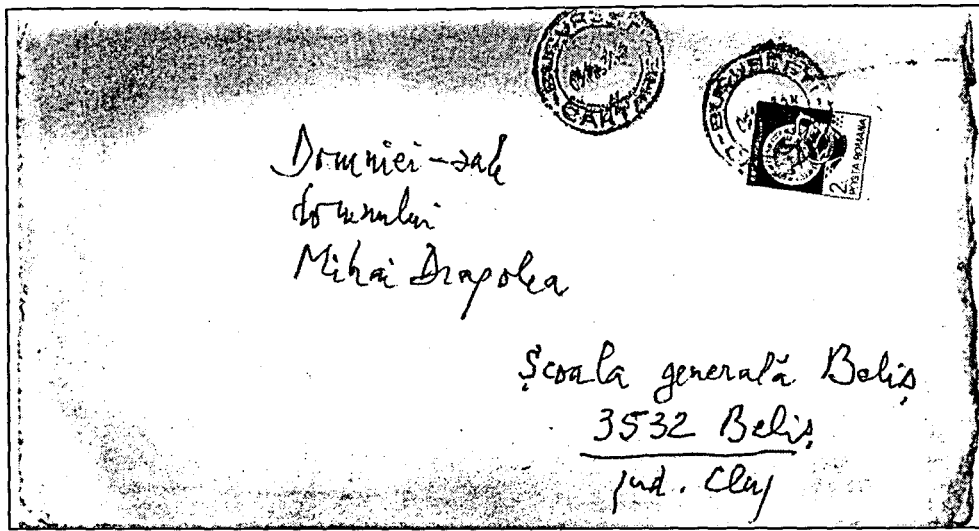 BUCUREȘTI
CARTARE
BUCUREȘTI
2
POSTA ROMANA
Domniei-sale
domnului
Mihai Dragolea
Școala generală Beliș
3532 Beliș
jud. Cluj